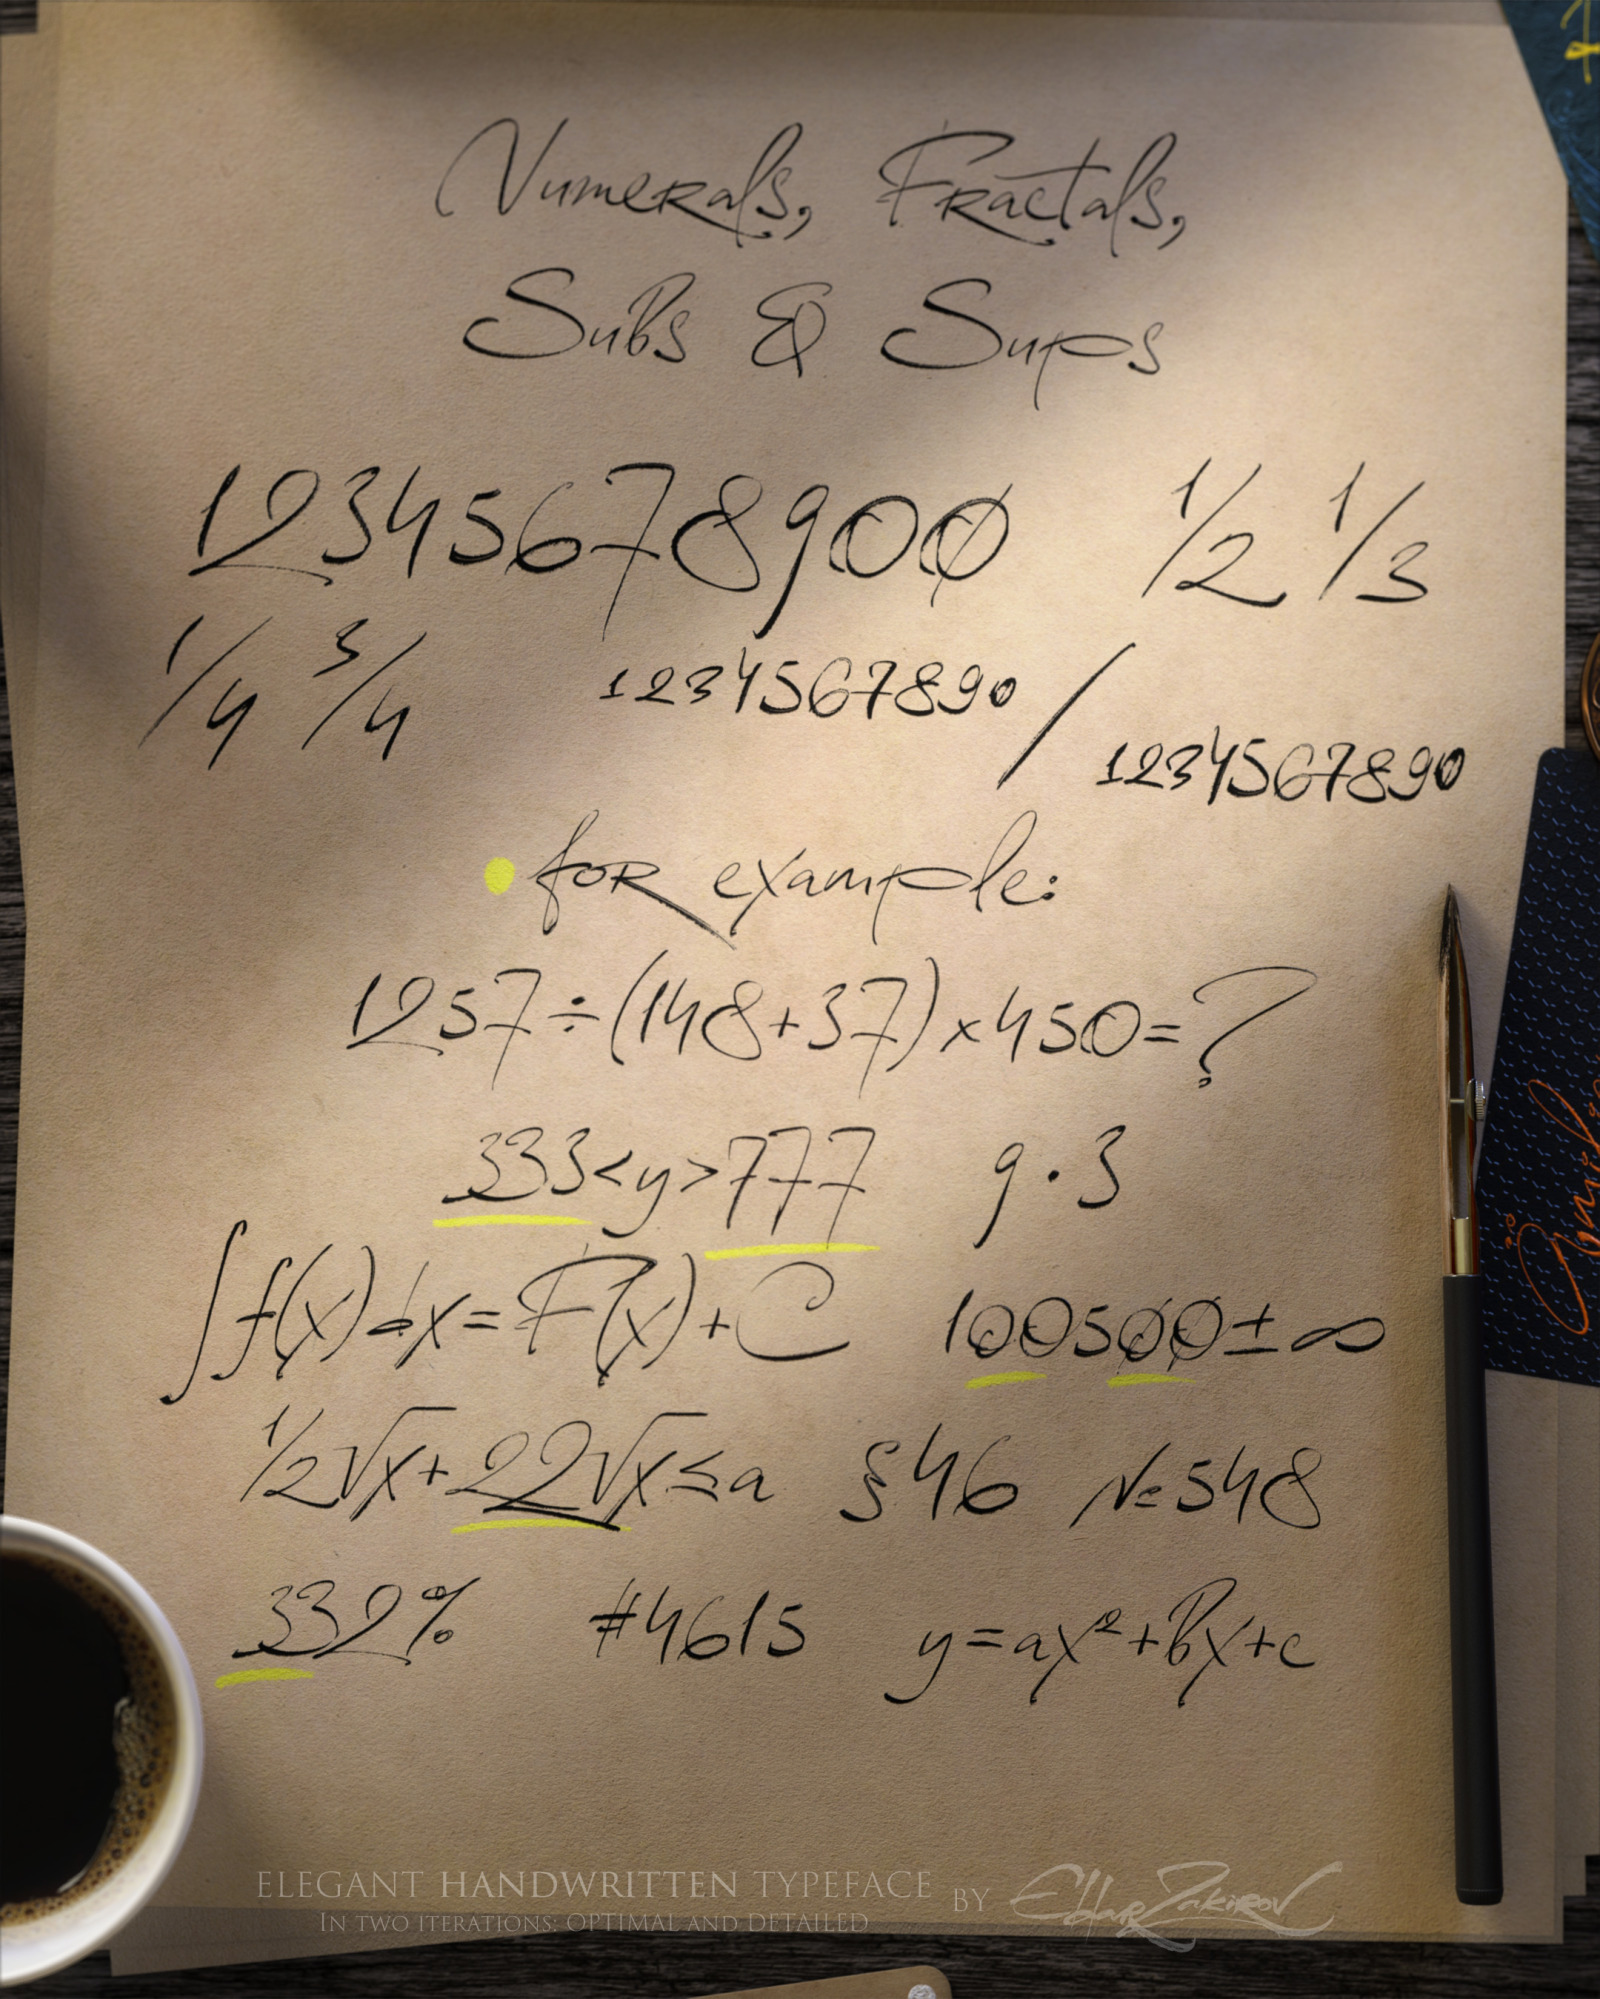 Numerals, Fractals,
Subs & Sups
12345678900 1/2 1/3
1/4 3/4 1234567890 / 1234567890
for example:
1257÷(148+37)×450=?
333<y>777 9·3
∫f(x)dx=F(x)+C 100500±∞
1/2√x+22√x≤a §46 №548
332% #4615 y=ax²+bx+c
ELEGANT HANDWRITTEN TYPEFACE BY Eldar Zakirov
IN TWO ITERATIONS: OPTIMAL AND DETAILED